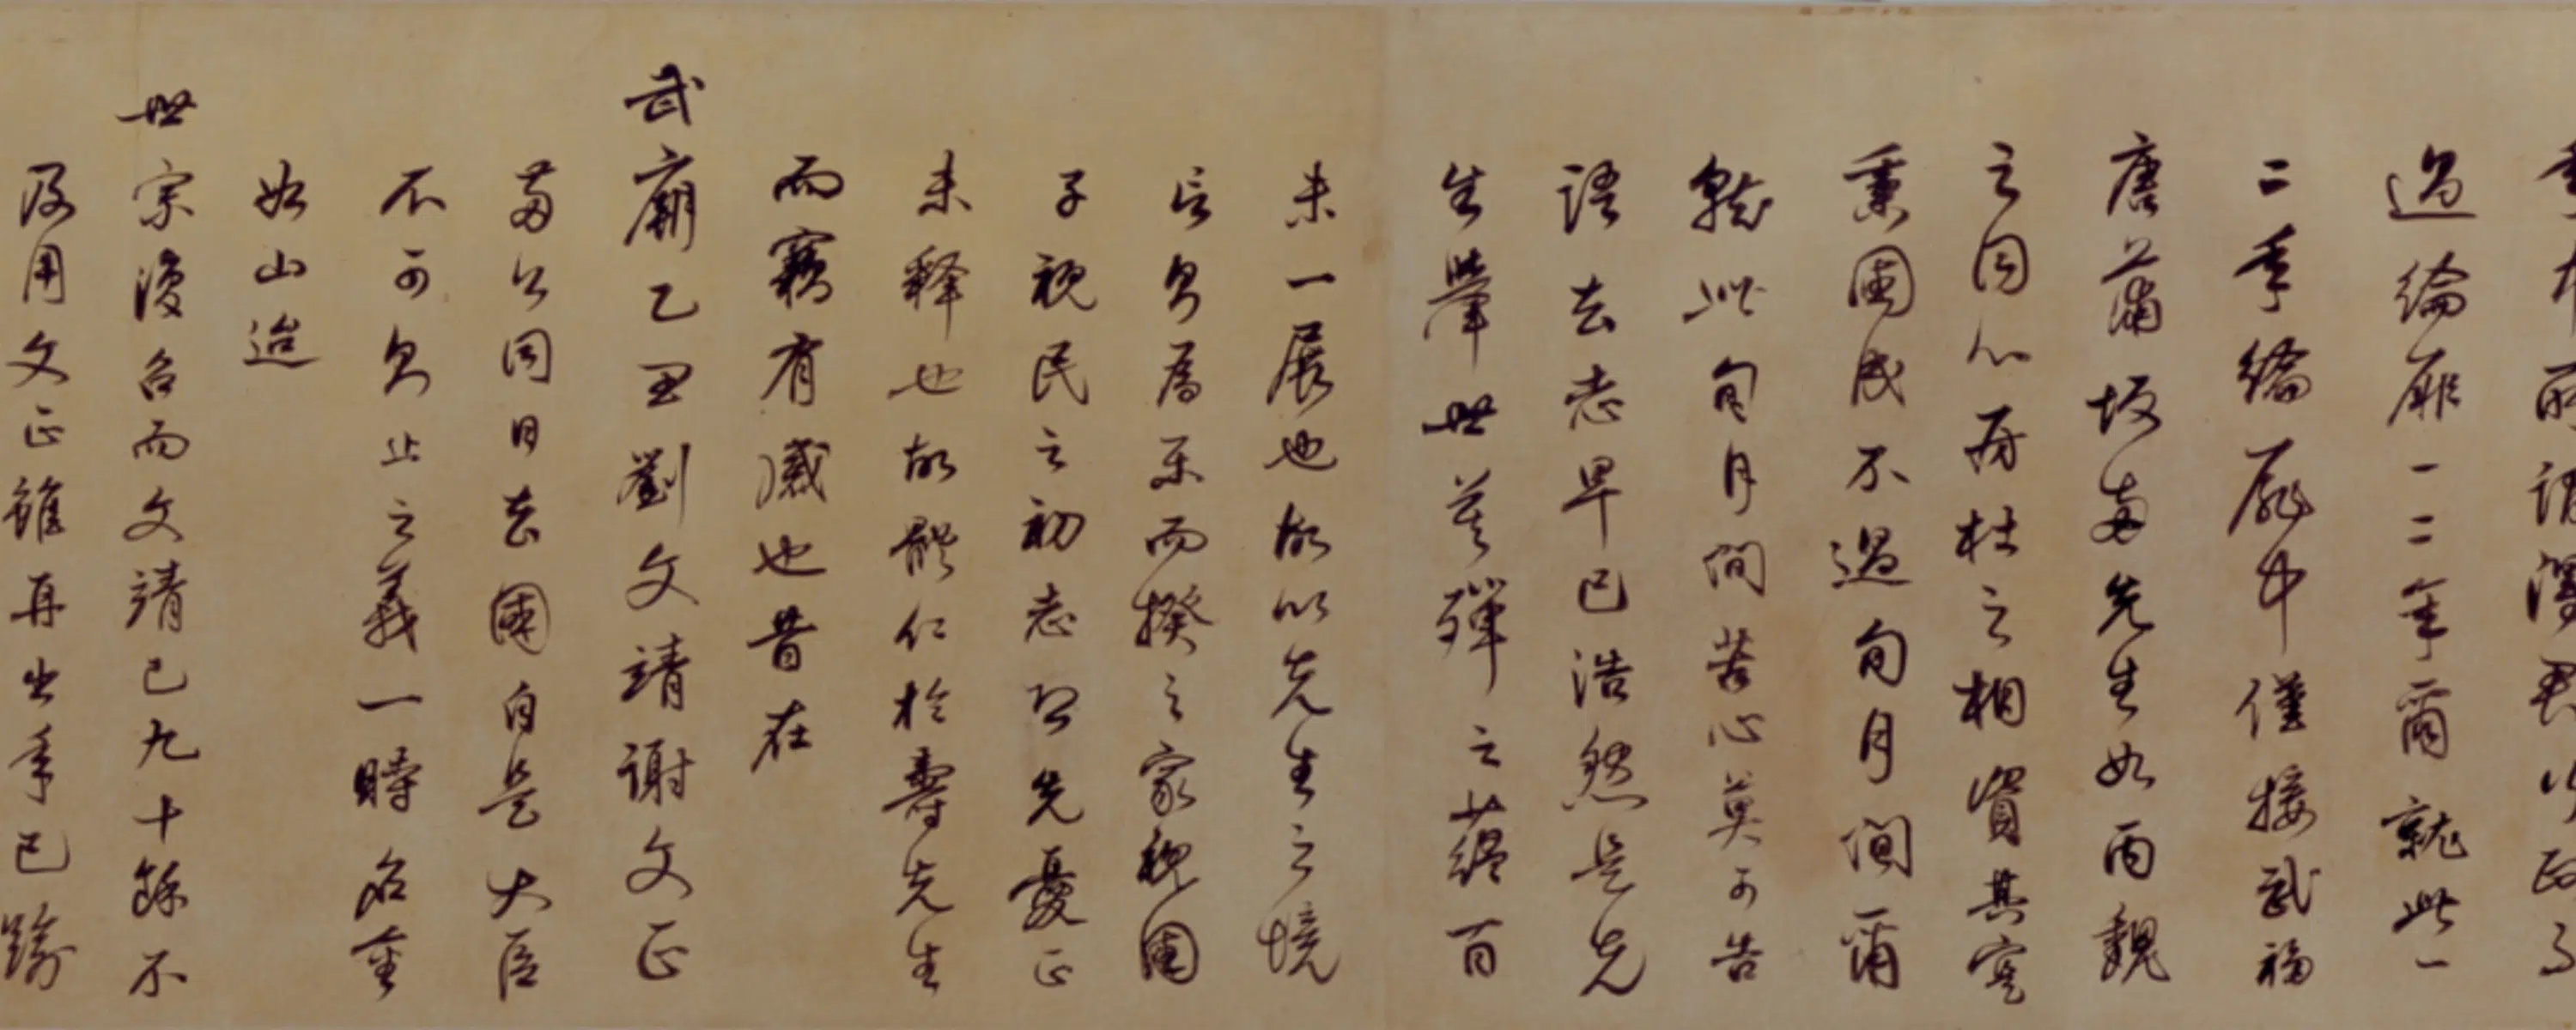 過綸扉一二年爾就此一
二年綸扉中僅接武福
唐蒲坂兩先生如丙魏
之同心房杜之相資其實
秉國成不過旬月間爾
就此旬月間苦心莫可告
語去志早已浩然是先
生舉世莫殫之蘊百
未一展也故以先生之境
而揆之家視國
子視民之初志即先憂正
未釋也故能仁於壽先生
而竊有感也昔在
武廟乙丑劉文靖謝文正
兩公同日去國自是大臣
不可以止之義一時名重
如山迨
世宗復召而文靖已九十餘不
及用文正雖再出年已踰